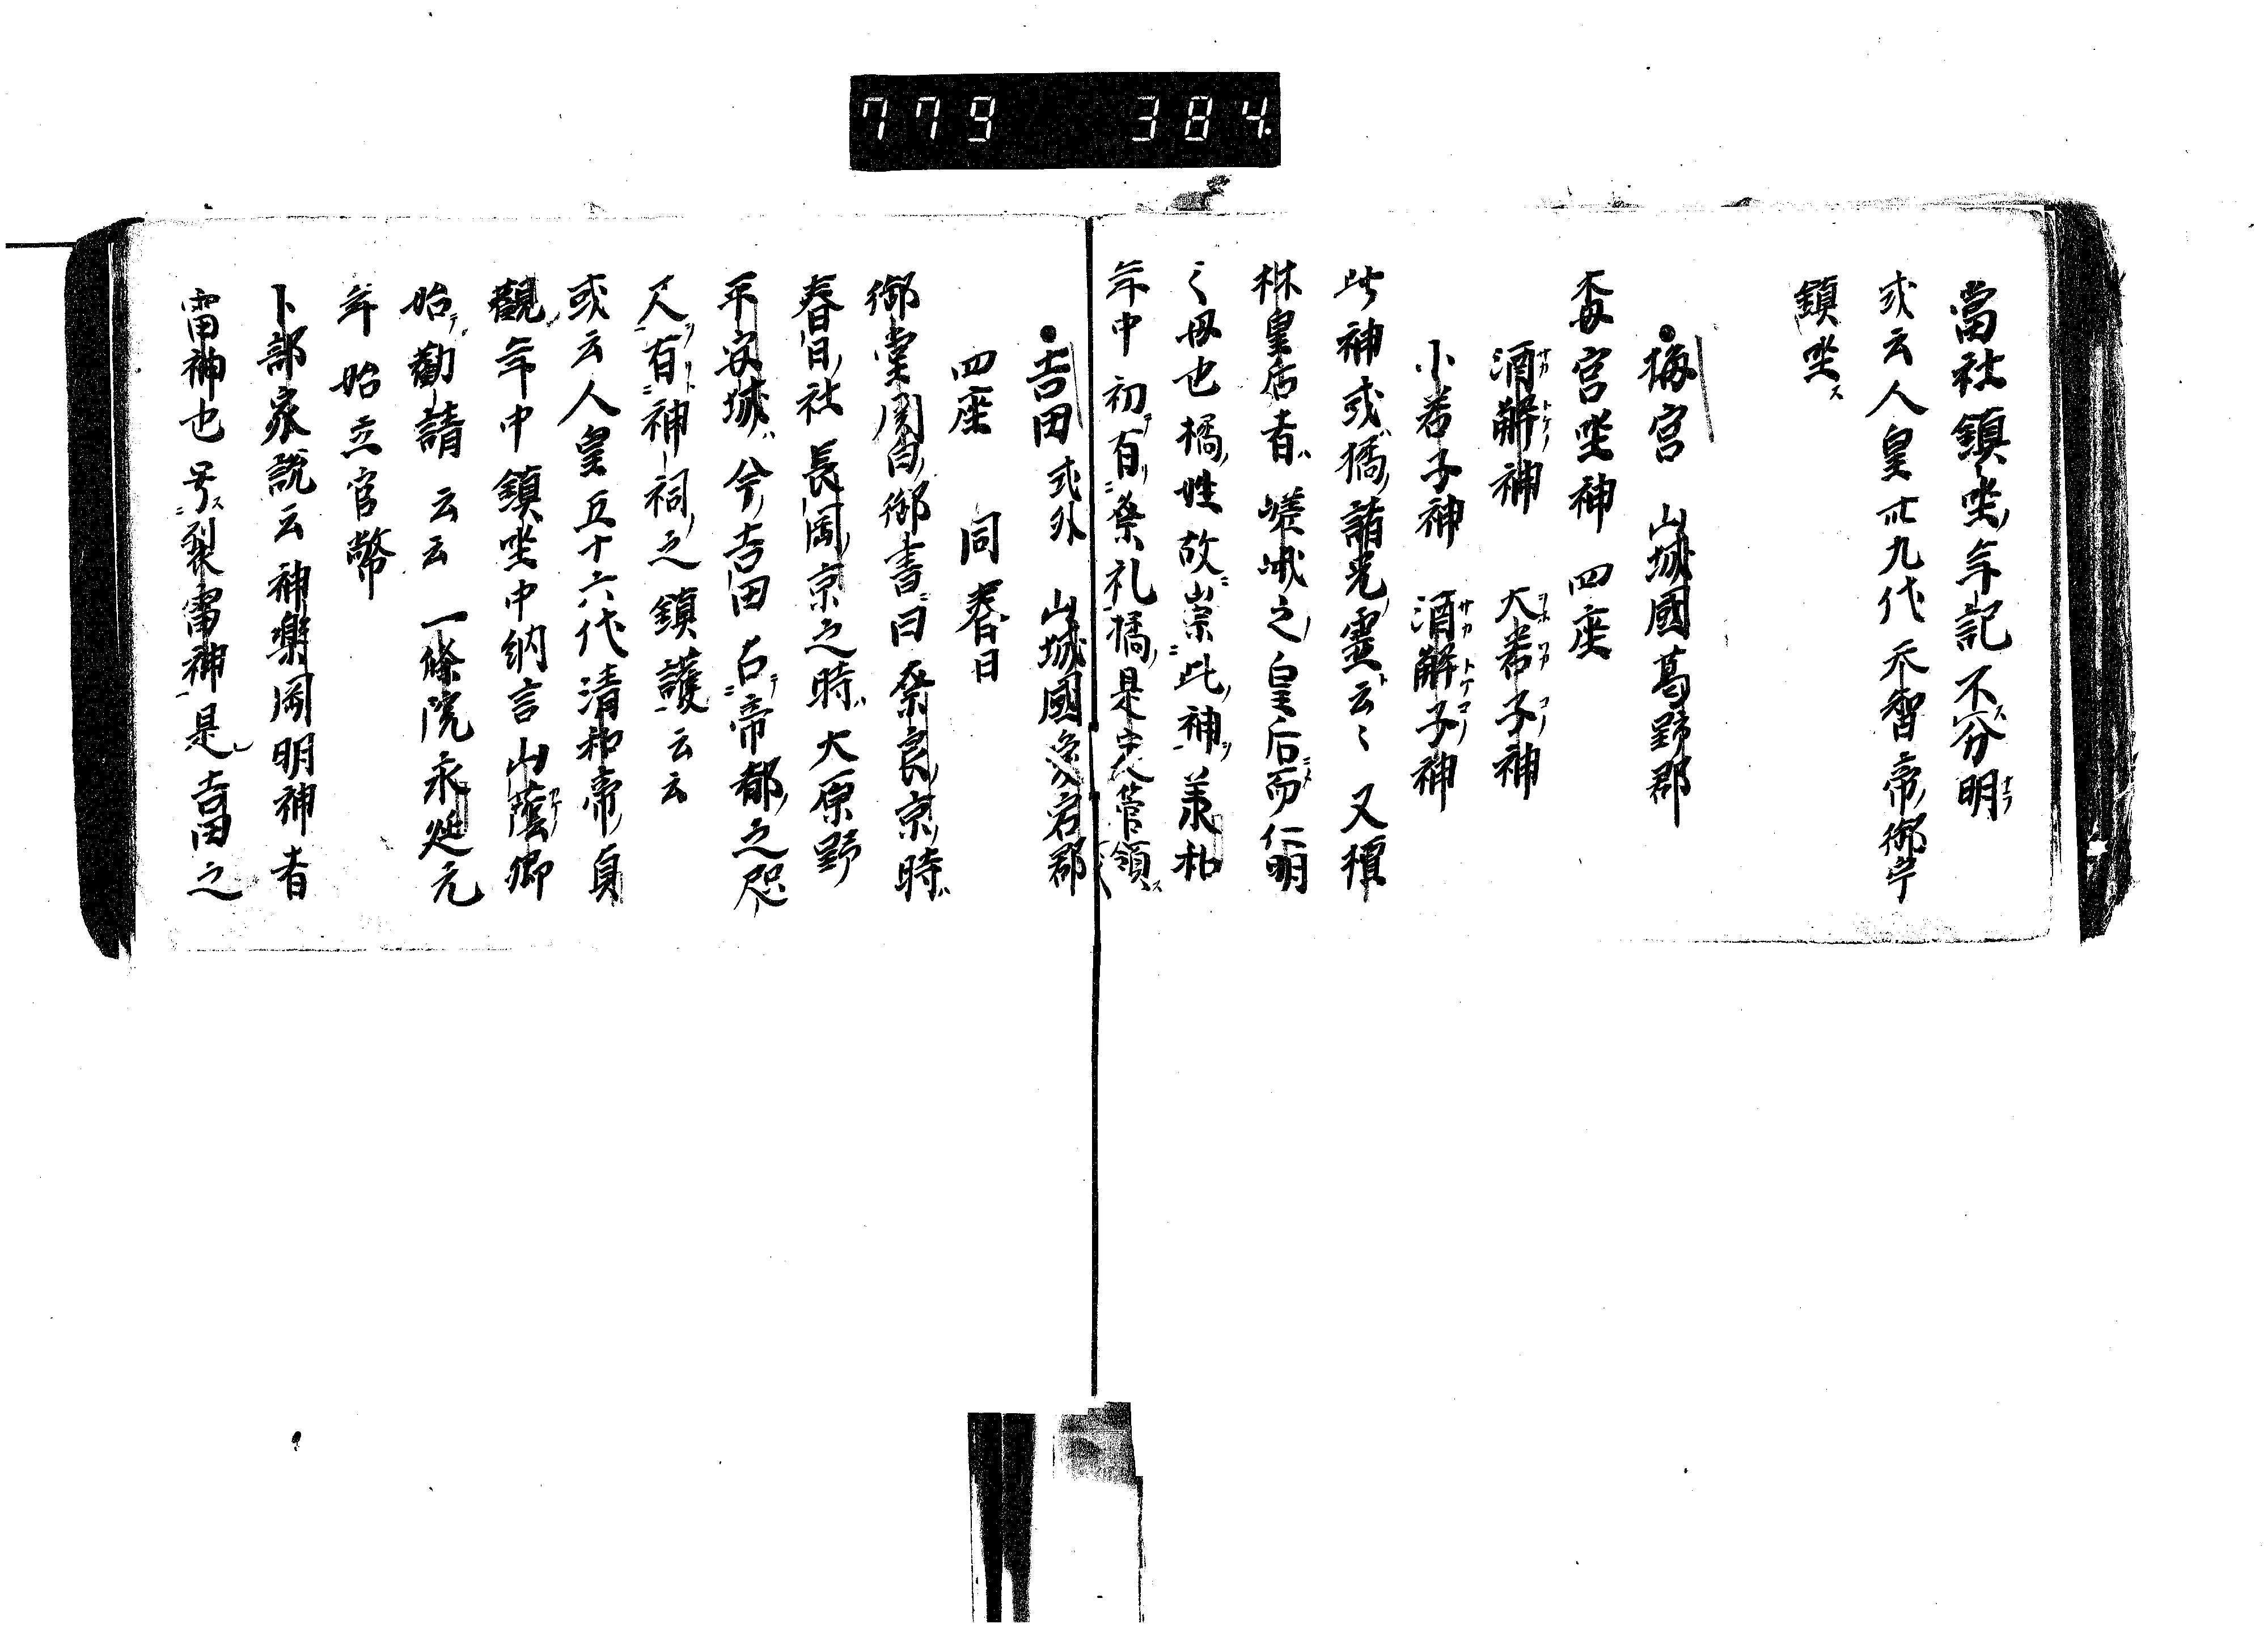 779 384.
當社鎮坐年記不分明
或云人皇卅九代天智帝御宇
鎮坐ス
梅宮 山城國葛野郡
梅宮坐神四座
酒解神 大若子神
小若子神 酒解子神
此神或橘諸兄霊云〻又檀
林皇后者嵯峨之皇后而仁明
之母也橘姓故崇此神承和
年中初有祭礼橘是定人管領ス
吉田 式外 山城國愛宕郡
四座 同春日
御堂関白御書曰奈良京時
春日社長岡京之時大原野
平安城今吉田占帝都之咫
尺有神祠之鎮護云云
或云人皇五十六代清和帝貞
觀年中鎮坐中納言山蔭卿
始勸請云云 一條院永延元
年始立官幣
卜部家説云神樂岡明神者
雷神也号裂雷神是吉田之